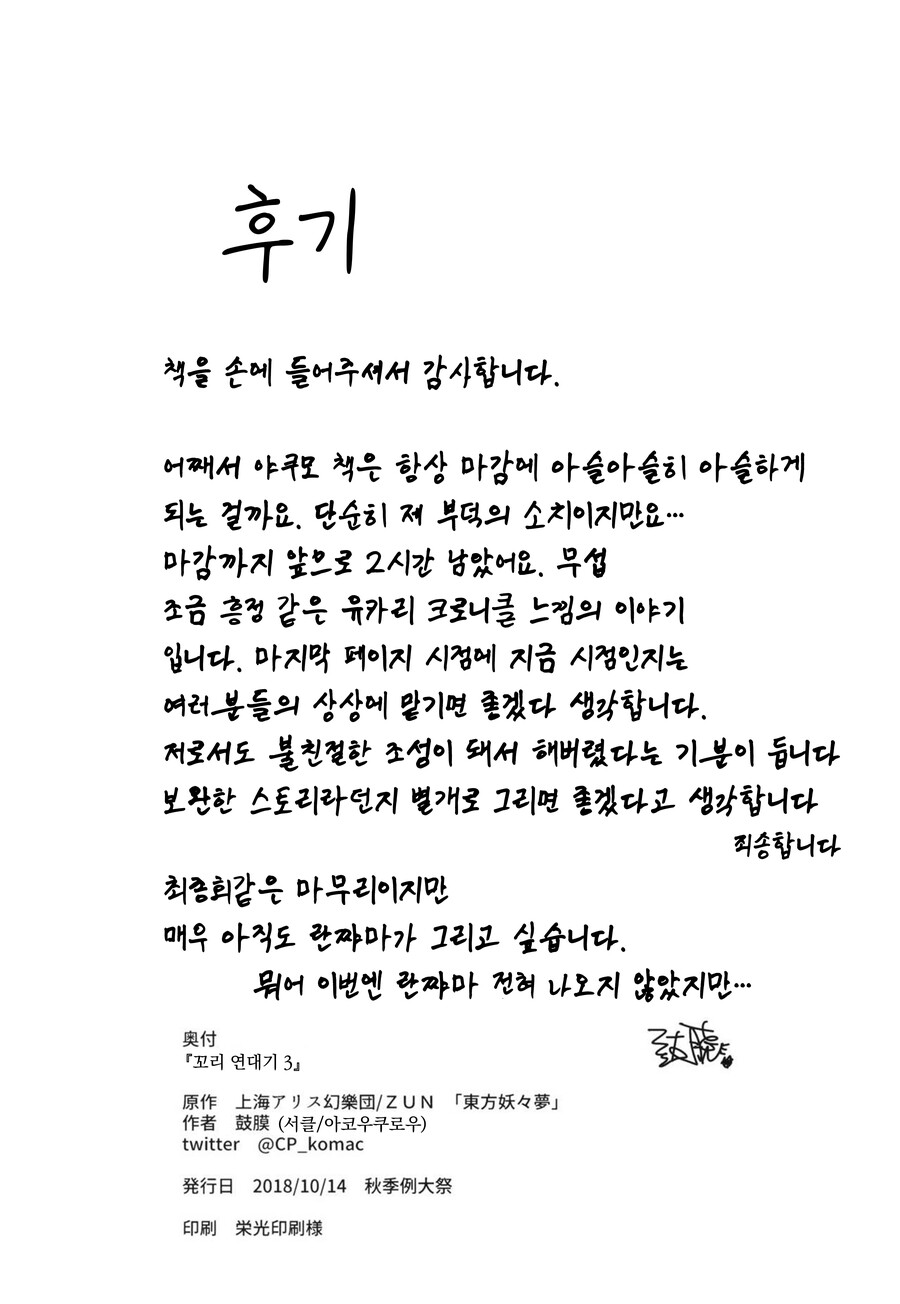 후기
책을 손에 들어주셔서 감사합니다.
어째서 야쿠모 책은 항상 마감에 아슬아슬히 아슬하게
되는 걸까요. 단순히 제 부덕의 소치이지만요…
마감까지 앞으로 2시간 남았어요. 무섭
조금 흥정 같은 유카리 크로니클 느낌의 이야기
입니다. 마지막 페이지 시점에 지금 시점인지는
여러분들의 상상에 맡기면 좋겠다 생각합니다.
저로서도 불친절한 조성이 돼서 해버렸다는 기분이 듭니다
보완한 스토리라던지 별개로 그리면 좋겠다고 생각합니다
죄송합니다
최종회같은 마무리이지만
매우 아직도 란쨔마가 그리고 싶습니다.
뭐어 이번엔 란쨔마 전혀 나오지 않았지만…
奥付
『꼬리 연대기 3』
原作 上海アリス幻樂団/ＺＵＮ 「東方妖々夢」
作者 鼓膜 (서클/아코우쿠로우)
twitter @CP_komac
発行日 2018/10/14 秋季例大祭
印刷 栄光印刷様